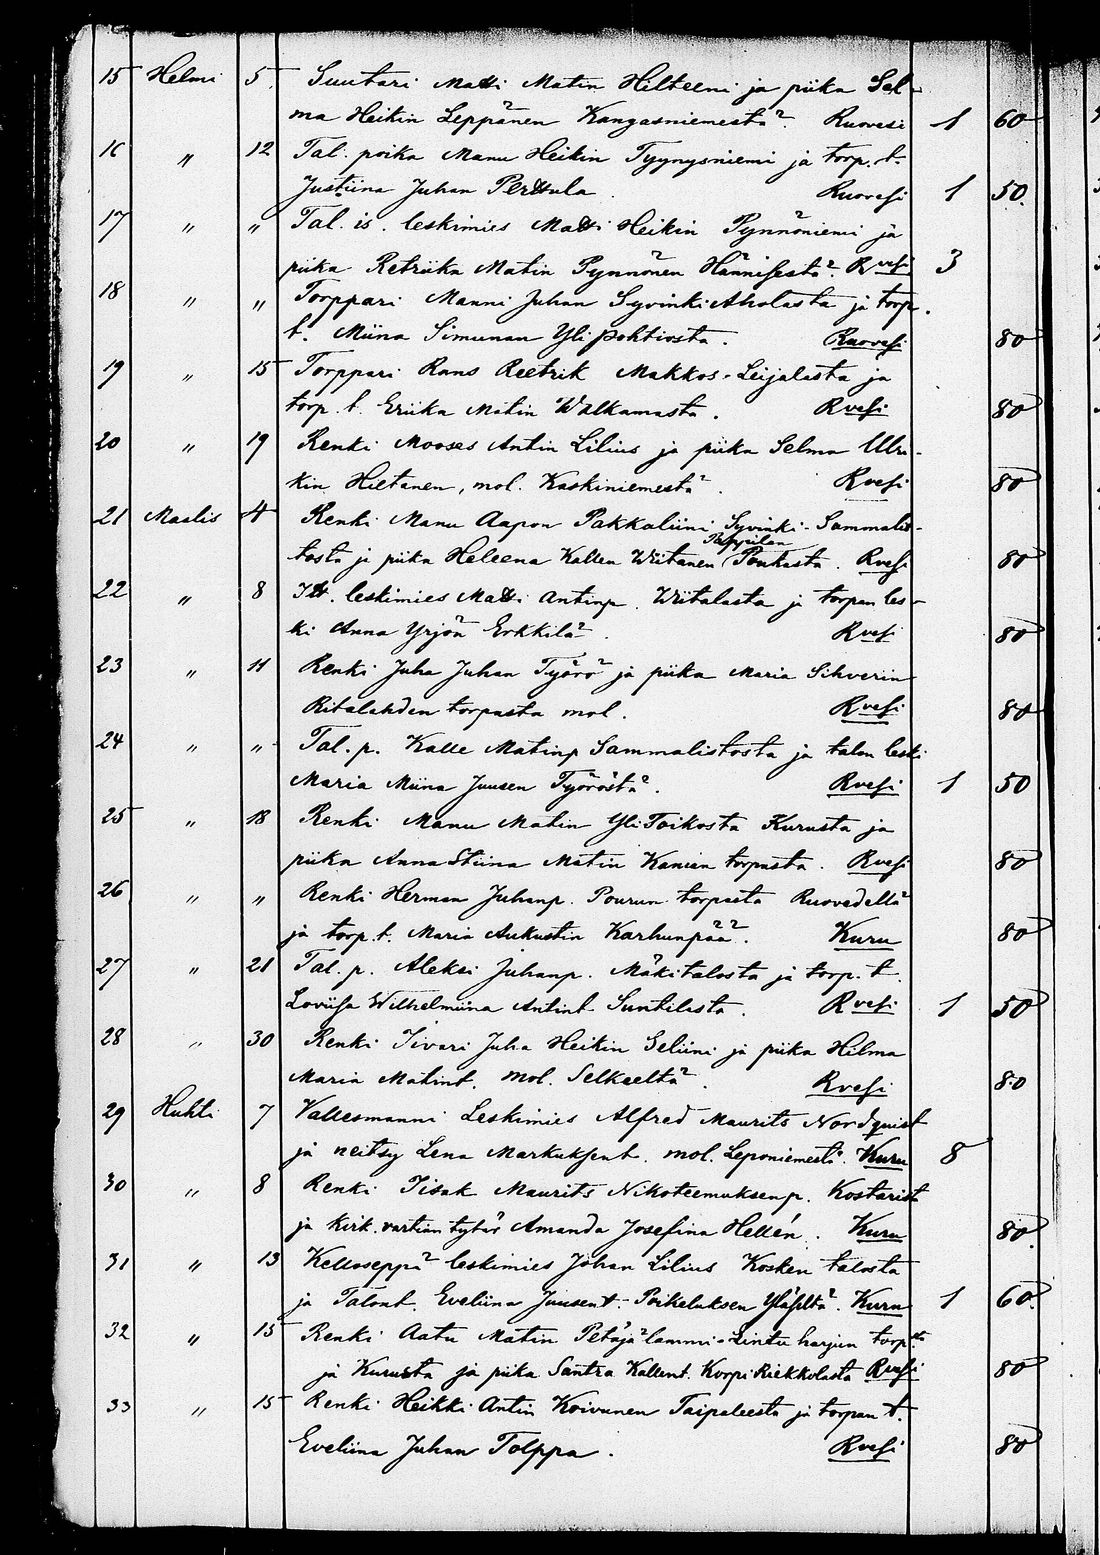 15 Helmi 5 Suutari Matti Matin Hilteeni ja piika Sel-
ma Heikin Leppänen Kangasniemestä. Ruovesi 1 60
16 " 12 Tal. poika Manu Heikin Tyynysniemi ja torp. t.
Justiina Juhan Perttula Ruovesi 1 50.
17 " " Tal. is. leskimies Matti Heikin Pynnöniemi ja
piika Retriika Matin Pynnönen Hännisestä. Rvesi 3
18 " " Torppari Manni Juhan Syvinki Aholasta ja torp.
t. Miina Simunan Ylipohtiosta. Ruovesi 80
19 " 15 Torppari Rans Reetrik Makkos-Leijalasta ja
torp. t. Eriika Matin Walkamasta. Rvesi 80
20 " 19 Renki Mooses Antin Lilius ja piika Selma Ulri-
kin Hietanen, mol. Kaskiniemestä. Rvesi 80
21 Maalis 4 Renki Manu Aapon Pakkaliini Syvinki-Sammalis-
Pappilan
tosta ja piika Heleena Kallen Wiitanen Poukasta. Rvesi 80
22 " 8 Itt. leskimies Matti Antinp. Wiitalasta ja torpan les-
ki Anna Yrjön Erkkilä. Rvesi 80
23 " 11 Renki Juha Juhan Työrö ja piika Maria Sihverin
Ritalahden torpasta mol. Rvesi 80
24 " " Tal. p. Kalle Matinp Sammalistosta ja talon leski
Maria Miina Juusen Työröstä. Rvesi 1 50
25 " 18 Renki Manu Matin YliToikosta Kurusta ja
piika Anna Stiina Matin Kanian torpasta. Rvesi 80
26 " " Renki Herman Juhanp. Pourun torpasta Ruovedellä
ja torp. t. Maria Aukustin Karhunpää. Kuru 80
27 " 21 Tal. p. Aleksi Juhanp. Mäkitalosta ja torp. t.
Loviisa Wilhelmiina Antint. Suntilasta. Rvesi 1 50
28 " 30 Renki Iivari Juha Heikin Seliini ja piika Hilma
Maria Matint. mol. Selkeeltä. Rvesi 80
29 Huhti 7 Vallesmanni Leskimies Alfred Maurits Nordquist
ja neitsy Lena Markuksent. mol. Leponiemestä. Kuru 8
30 " 8 Renki Iisak Maurits Nikoteemuksenp. Kostarist
ja kirk. vartian tytär Amanda Josefina Hellén. Kuru 80.
31 " 13 Kelloseppä leskimies Johan Lilius Kosken talosta
ja Talont. Eveliina Juusent. Poikeluksen Yläseltä. Kuru 1 60.
32 " 15 Renki Aatu Matin Petäjälammi-Lintu harjun torpsta
ja Kurusta ja piika Santra Kallent. Korpi Riekkolasta Rvesi 80
33 " 15 Renki Heikki Antin Koivunen Taipaleesta ja torpan t.
Eveliina Juhan Tolppa. Rvesi 80